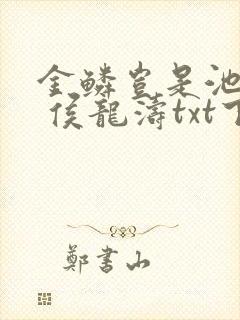 金鱗豈是池
侯龍濤txt下
鄭書山